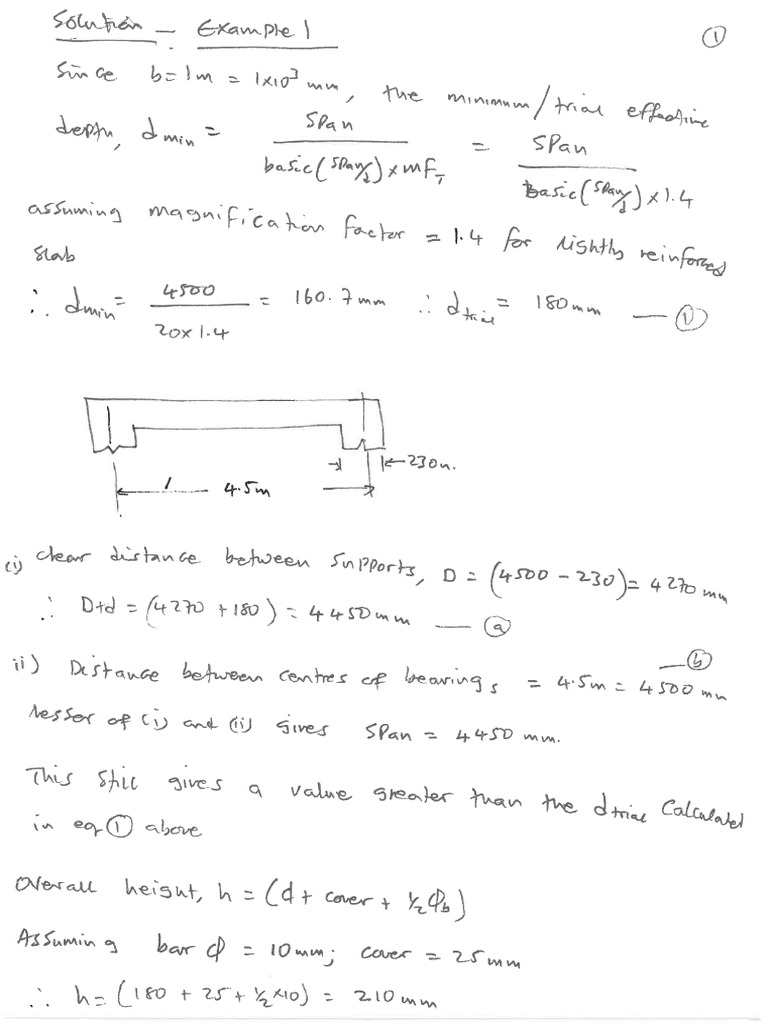 Solution — Example 1
①
Since b = 1m = 1x10³ mm, the minimum/trial effective
depth, d min = Span / basic(span/d) x mF_T = Span / Basic(span/d) x 1.4
assuming magnification factor = 1.4 for lightly reinforced
slab
∴ dmin = 4500 / 20x1.4 = 160.7mm ∴ d trial = 180mm — ①
230m.
4.5m
(i) clear distance between supports, D = (4500 - 230) = 4270 mm
∴ D+d = (4270 + 180) = 4450mm — ⓐ
ii) Distance between centres of bearings = 4.5m = 4500 mm — ⓑ
lesser of (i) and (ii) gives span = 4450 mm.
This still gives a value greater than the d trial Calculated
in eq ① above
Overall height, h = (d + cover + ½Φb)
Assuming bar φ = 10mm; cover = 25mm
∴ h = (180 + 25 + ½x10) = 210mm